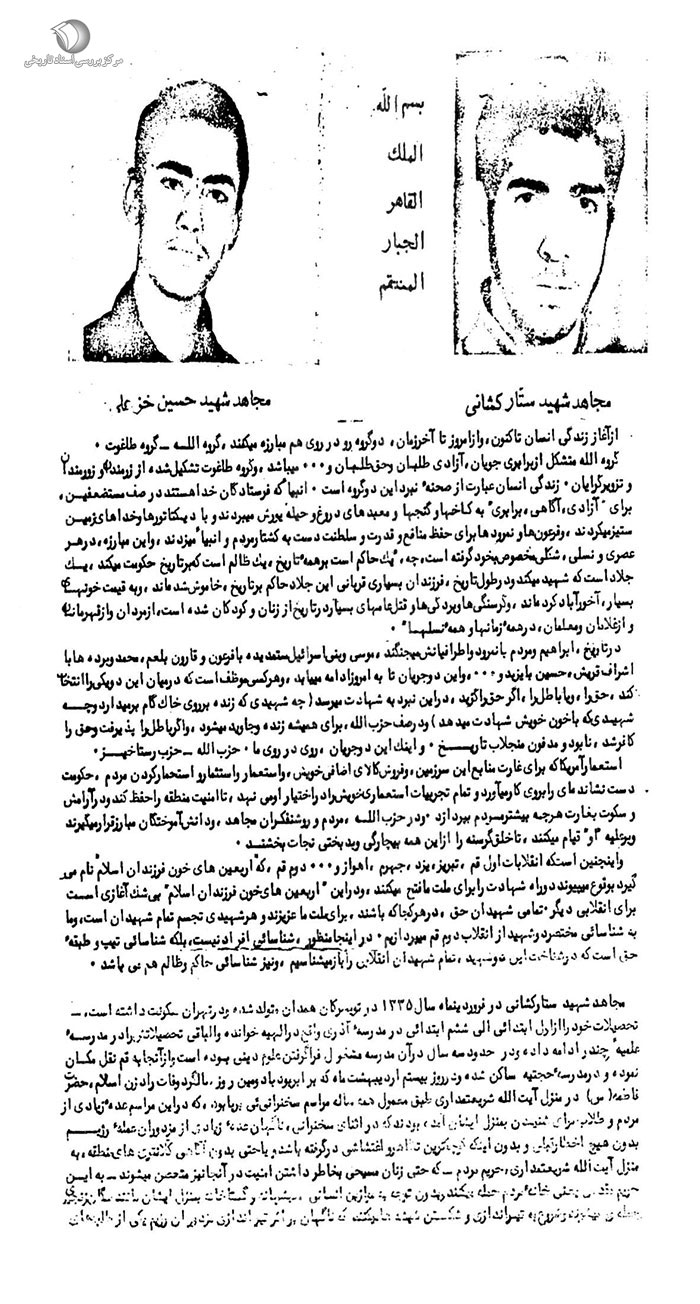 مرکز بررسی اسناد تاریخی
بسم الله
الملك
القاهر
الجبار
المنتقم
مجاهد شهید ستار کشانی
مجاهد شهید حسین خز علی
ازآغاز زندگی انسان تاکنون، وازامروز تا آخرزمان، دوگروه رو در روی هم مبارزه میکنند، گروه اللـه ــ گروه طاغوت ۰
گروه الله متشکل ازبرابری جویان، آزادی طلبان وحق طلبان و۰۰۰ میباشد ، وگروه طاغوت تشکیل شده از زرمندان و زورمندان
و تزویرگرایان ۰ زندگی انسان عبارت از صحنهٔ نبرد این دوگروه است ۰ انبیا که فرستادگان خدا هستند در صف مستضعفین،
برای "آزادی، آگاهی، برابری" به کاخها و گنجها و معبدهای دروغ و حیله یورش میبردند و با دیکتاتورها وخداهای زمین
ستیز میکردند، وفرعونها و نمرودها برای حفظ منافع و قدرت و سلطنت دست به کشتار مردم و انبیا میزدند، واین مبارزه، درهر
عصری و نسلی، شکلی مخصوص بخود گرفته است، چه، "یك حاکم است برهمه تاریخ، یك ظالم است که برتاریخ حکومت میکند، یــك
جلاد است که شهید میکند ودر طول تاریخ، فرزندان بسیاری قربانی این جلاد حاکم برتاریخ، خاموش شده اند، وبه قیمت خونهای
بسیار، آخور آباد کرده اند، وگرسنگی ها وبردگی ها و قتل عامهای بسیار درتاریخ از زنان و کودکان شده است، ازمردان وازقهرمانان
و ازغلامان ومعلمان، درهمه زمانها وهمه نسلها" ۰
درتاریخ، ابراهیم ومردم با نمرود واطرافیانش میجنگند، موسی وبنی اسرائیل ستمدیده با فرعون و قارون بلعم، محمد وبرده ها با
اشراف قریش، حسین با یزید و۰۰۰، واین دوجریان تا به امروز ادامه مییابد، وهرکسی موظف است که درمیان این دو یکی را انتخاب
کند، حق را، ویا باطل را، اگر حق راگزید، در این نبرد به شهادت میرسد (چه شهیدی که زنده برروی خاك گام برمیدارد وچــه
شهیدی که باخون خویش شهادت میدهد) ودر صف حزب الله، برای همیشه زنده وجاوید میشود، واگر باطل را پذیرفت وحق را
کافر شد، نابود و مدفون منجلاب تاریــخ ۰ و اینك این دوجریان، روی در روی ما ۰ حزب الله ــ حزب رستاخیــز ۰
استعمار آمریکا که برای غارت منابع این سرزمین، وفروش کالای اضافی خویش، واستعمار واستثمار و استحمار کردن مردم، حکومت
دست نشانده ای را بروی کار میآورد و تمام تجربیات استعماری خویش را در اختیار او می نهد، تا امنیت منطقه را حفظ کند ودر آرامش
و سکوت بغارت هرچه بیشتر مردم بپردازد ۰ ودر حزب اللــه، مردم و روشنفکران مجاهد، ودانش آموختگان مبارز قرار میگیرند
وبرعلیه "او" قیام میکنند، تاخلق گرسنه را از این همه بیچارگی وبدبختی نجات بخشنــد ۰
واینچنین است که انقلابات اول قم، تبریز، یزد، جهرم، اهواز و۰۰۰ دوم قم، که "اربعین های خون فرزندان اسلام" نام می
گیرد بوقوع میپیوندد وراه شهادت را برای ملت ما فتح میکند، ودر این "اربعین های خون فرزندان اسلام" بی شك آغازی اســت
برای انقلابی دیگر ۰ تمامی شهیدان حق، درهر کجا که باشند، برای ملت ما عزیزند و هر شهیدی تجسم تمام شهیدان است، وما
به شناسائی مختصر دو شهید از انقلاب دوم قم میپردازیم ۰ در اینجا منظور، شناسائی افراد نیست، بلکه شناسائی تیپ و طبقهٔ
حق است که درشناخت این دو شهید، تمام شهیدان انقلابی را بازمیشناسیم، ونیز شناسائی حاکم وظالم هم می باشد ۰
مجاهد شهید ستار کشانی در فروردینماه سال ۱۳۳۵ در تویسرکان همدان، تولد شده ودر تهران سکونت داشته است، ــ
تحصیلات خود را از اول ابتدائی الی ششم ابتدائی در مدرسهٔ آذری واقع در الهیه خوانده والباقی تحصیلاتش را در مدرســهٔ
علمیهٔ چیذر ادامه داده ودر حدود سه سال در آن مدرسه مشغول فراگرفتن علوم دینی بوده است واز آنجا به قم نقل مکــان
نموده و درمدرسهٔ حجتیه ساکن شده ودر روز بیستم اردیبهشت ماه که برابر بود با دومین روز، سالگرد وفات راد زن اسلام، حضرت
فاطمه (س) در منزل آیت الله شریعتمداری طبق معمول همه ساله مراسم سخنرانی ئی برپا بود، که در این مراسم عده زیادی از
مردم و طلاب برای شرکت بمنزل ایشان آمده بودند که در اثنای سخنرانی، ناگهان عدهٔ زیادی از مزدوران عملهٔ رژیــم
بدون هیچ اخطار قبلی و بدون اینکه کوچکترین تظاهر و اغتشاشی در گرفته باشد ویا حتی بدون آگاهی کلانتری های منطقه، به
منزل آیت الله شریعتمداری، حریم مردم ــ که حتی زنان مسیحی بخاطر داشتن امنیت در آنجا نیز متحصن میشوند ــ به ایــن
حریم یعنی خانهٔ مردم حمله میکنند وبدون توجه به موازین انسانی، وبیشرمانه و گستاخانه بمنزل ایشان مانند سگان
و شروع به تیراندازی و شکستن شیشه ها میکنند که ناگهان بر اثر تیراندازی مزدوران رژیم یکی از طلبه های